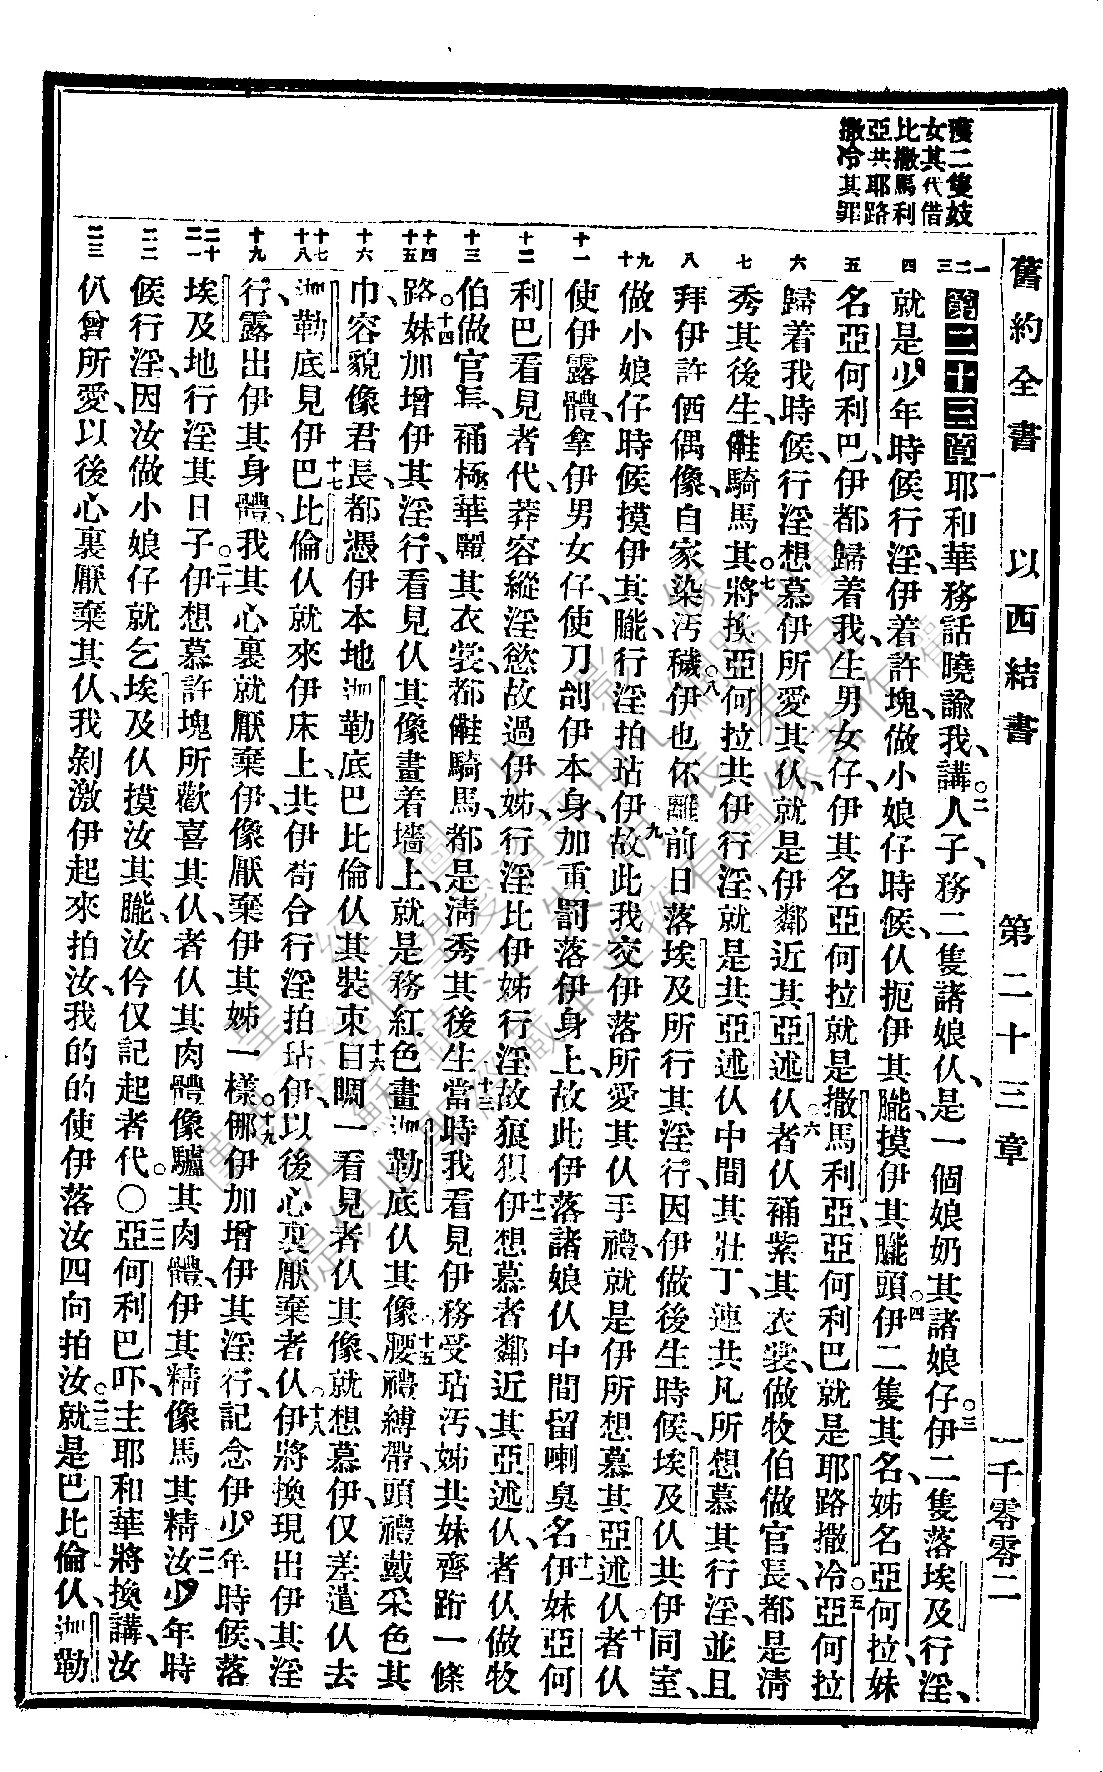 舊約全書 以西結書 第二十三章 一千零零二
獲二隻妓
女其代借
比撒馬利
亞共耶路
撒冷其罪
一二三
第二十三章 一耶和華務話曉諭我、講、○二人子、務二隻諸娘仈、是一個娘奶其諸娘仔、○三伊二隻落埃及行淫、
四
就是少年時候行淫、伊着許塊、做小娘仔時候、仈扼伊其朧、摸伊其朧頭、○四伊二隻其名、姊名亞何拉、妹
五
名亞何利巴、伊都歸着我、生男女仔、伊其名亞何拉就是撒馬利亞、亞何利巴就是耶路撒冷、○五亞何拉
六
歸着我時候、行淫想慕伊所愛其仈、就是伊鄰近其亞述仈、○六者仈𧙕紫其衣裳、做牧伯做官長、都是清
七
秀其後生、㒺騎馬其、○七將換亞何拉共伊行淫、就是共亞述仈中間其壯丁、連共凡所想慕其行淫、並且
八
拜伊許仴偶像、自家染汚穢、○八伊也伓離前日落埃及所行其淫行、因伊做後生時候、埃及仈共伊同室、
九十
做小娘仔時候摸伊其朧、行淫拍玷伊、九故此我交伊落所愛其仈手禮、就是伊所想慕其亞述仈、○十者仈
十一
使伊露體、拿伊男女仔、使刀刣伊本身、加重罰落伊身上、故此伊落諸娘仈中間留喇臭名、十一伊妹亞何
十二
利巴看見者代、莽容縱淫慾、故過伊姊、行淫比伊姊行淫、故狼狽、十二伊想慕者鄰近其亞述仈、者仈做牧
十三
伯做官長、𧙕極華麗其衣裳、都㒺騎馬、都是清秀其後生、十三當時我看見伊務受玷汚、姊共妹齊跲一條
十四十五
路、○十四妹加增伊其淫行、看見仈其像畫着墻上、就是務紅色畫迦勒底仈其像、十五腰禮縛帶、頭禮戴采色其
十六
巾、容貌像君長、都憑伊本地迦勒底巴比倫仈其裝束、十六目瞯一看見者仈其像、就想慕伊、仅差遣仈去
十七十八
迦勒底見伊、十七巴比倫仈就來伊床上、共伊苟合行淫拍玷伊、以後心裏厭棄者仈、○十八伊將換現出伊其淫
十九
行、露出伊其身體、我其心裏就厭棄伊、像厭棄伊其姊一樣、○十九㑚伊加增伊其淫行、記念伊少年時候、落
二十二一
埃及地行淫其日子、○二十伊想慕許塊所歡喜其仈、者仈其肉體像驢其肉體、伊其精像馬其精、二一汝少年時
二二
候行淫、因汝做小娘仔就乞埃及仈摸汝其朧、汝仱仅記起者代。○二二亞何利巴吓、主耶和華將換講、汝
二三
仈曾所愛、以後心裏厭棄其仈、我剝激伊起來拍汝、我的的使伊落汝四向拍汝、○二三就是巴比倫仈、迦勒